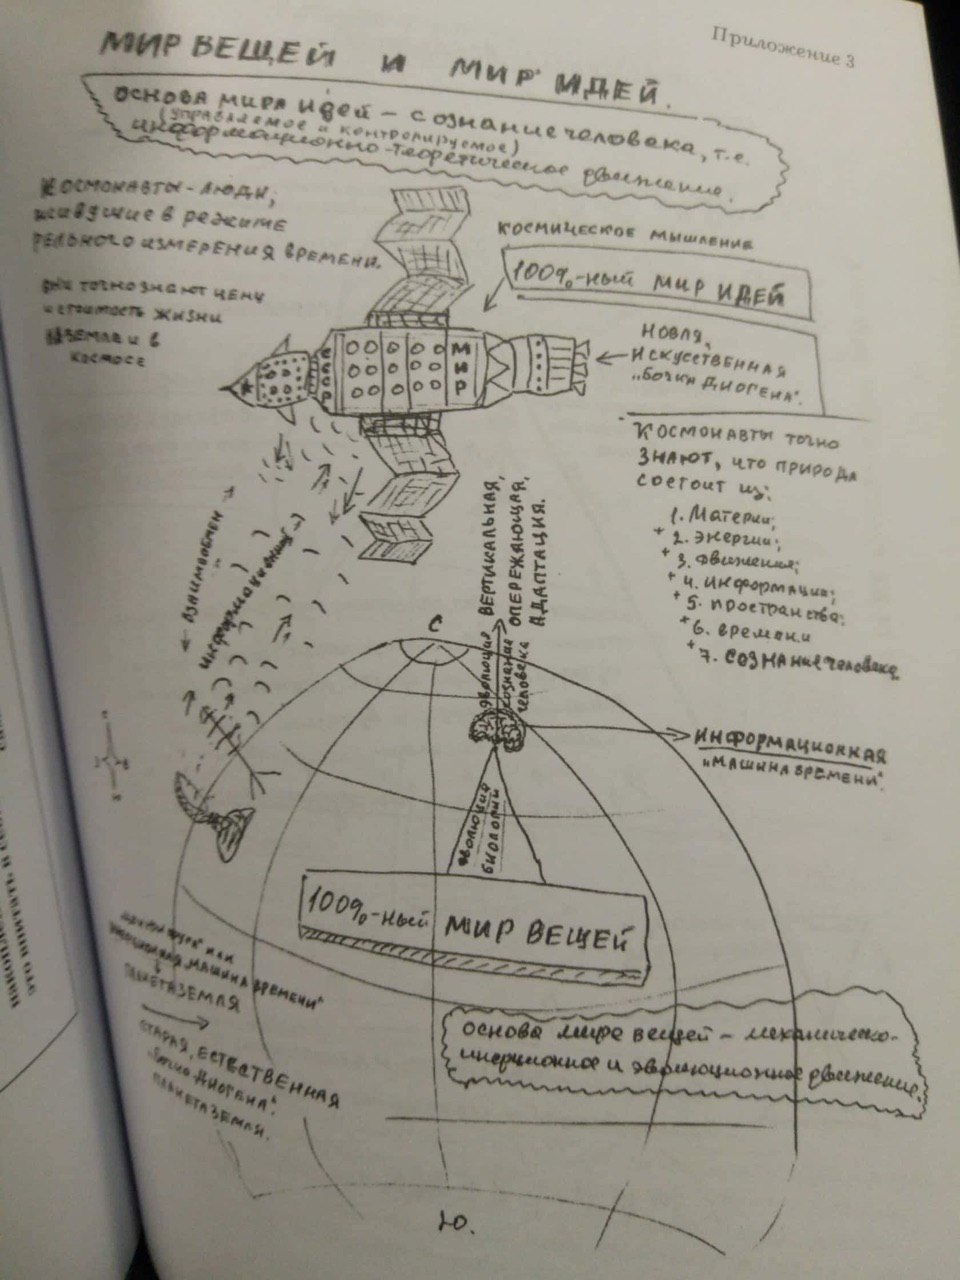 Приложение 3
МИР ВЕЩЕЙ И МИР ИДЕЙ.
ОСНОВА МИРА ИДЕЙ – СОЗНАНИЕ ЧЕЛОВЕКА, т.е.
(УПРАВЛЯЕМОЕ И КОНТРОЛИРУЕМОЕ)
ИНФОРМАЦИОННО-ТЕОРЕТИЧЕСКОЕ ДВИЖЕНИЕ.
КОСМОНАВТЫ-ЛЮДИ,
ЖИВУЩИЕ В РЕЖИМЕ
РЕЛЬНОГО ИЗМЕРЕНИЯ ВРЕМЕНИ.
ОНИ ТОЧНО ЗНАЮТ ЦЕНУ
И СТОИМОСТЬ ЖИЗНИ
ЗЕМЛЕ И В
КОСМОСЕ
КОСМИЧЕСКОЕ МЫШЛЕНИЕ
100%-НЫЙ МИР ИДЕЙ
НОВАЯ,
ИСКУСТВЕННАЯ
„БОЧКА ДИОГЕНА".
СССР
МИР
КОСМОНАВТЫ ТОЧНО
ЗНАЮТ, ЧТО ПРИРОДА
СОСТОИТ ИЗ:
1. Материи;
+ 2. Энергии;
+ 3. Движения;
+ 4. Информации;
+ 5. Пространства;
+ 6. времени
+ 7. СОЗНАНИЕ ЧЕЛОВЕКА
ВЗАИМООБМЕН
ИНФОРМАЦИЕЙ
ВЕРТИКАЛЬНАЯ,
ОПЕРЕЖАЮЩАЯ,
АДАПТАЦИЯ.
С
ЭВОЛЮЦИЯ
СОЗНАНИЕ
ЧЕЛОВЕКА
ИНФОРМАЦИОННАЯ
„МАШИНА ВРЕМЕНИ".
ЭВОЛЮЦИЯ
БИОЛОГИИ
100%-НЫЙ МИР ВЕЩЕЙ
ИЛИ
„МАШИНА ВРЕМЕНИ"
ПЛАНЕТА ЗЕМЛЯ
СТАРАЯ, ЕСТЕСТВЕННАЯ
„БОЧКА ДИОГЕНА".
ПЛАНЕТА ЗЕМЛЯ.
ОСНОВА МИРА ВЕЩЕЙ – МЕХАНИЧЕСКО-
ИНЕРЦИОННОЕ И ЭВОЛЮЦИОННОЕ ДВИЖЕНИЕ.
Ю.